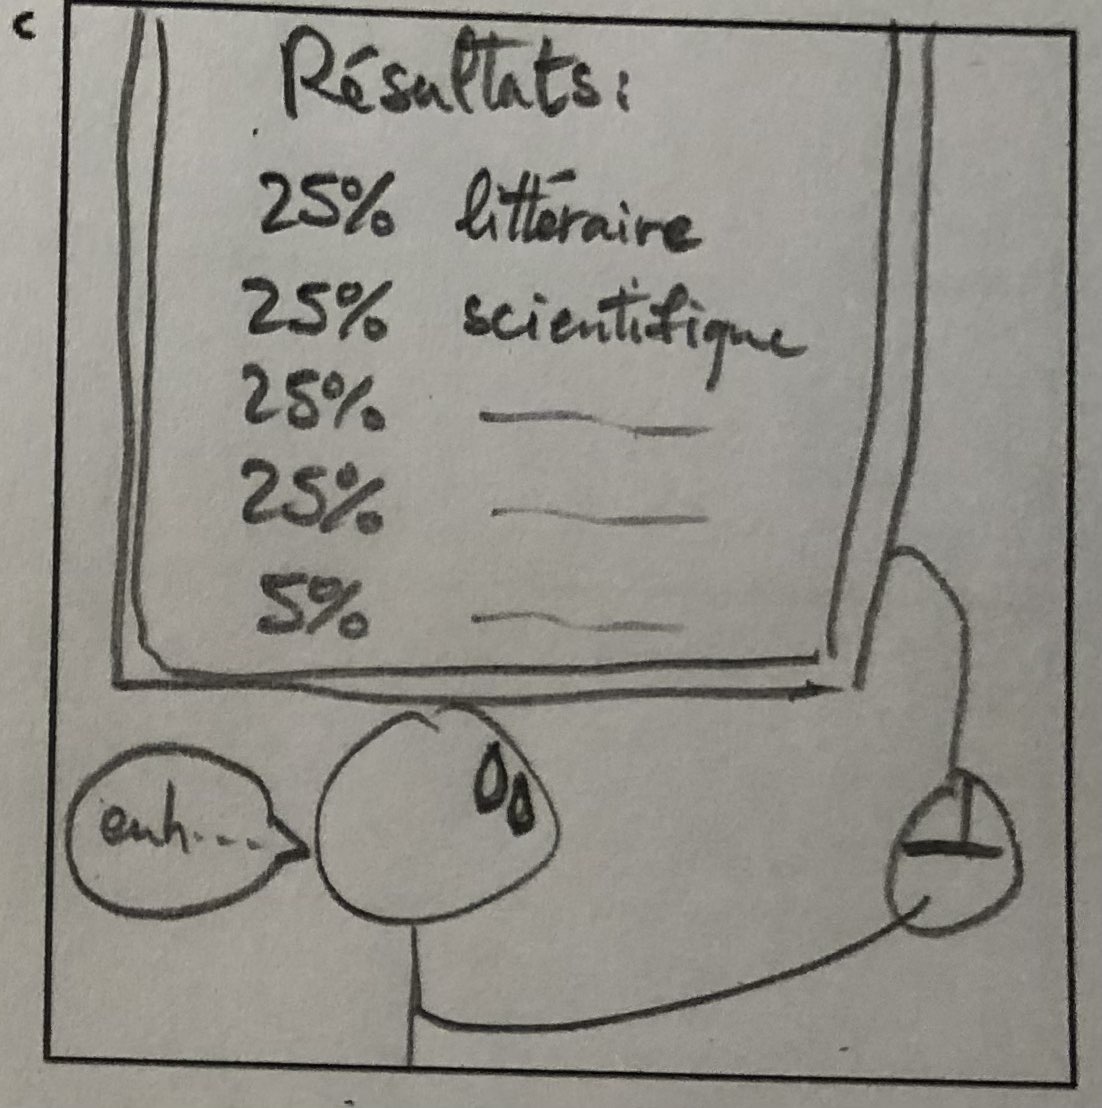 c
Résultats:
25% littéraire
25% scientifique
25%
25%
5%
euh....